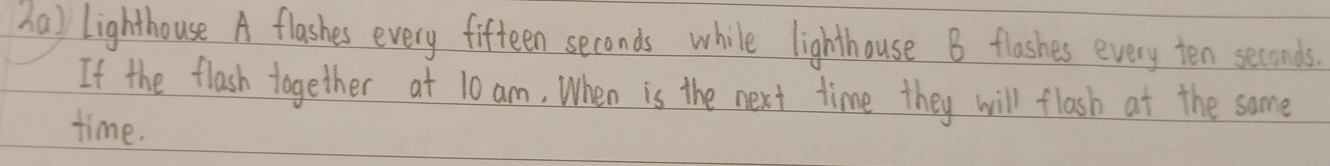 2a) Lighthouse A flashes every fifteen seconds while lighthouse B flashes every ten seconds.
If the flash together at 10 am. When is the next time they will flash at the same
time.